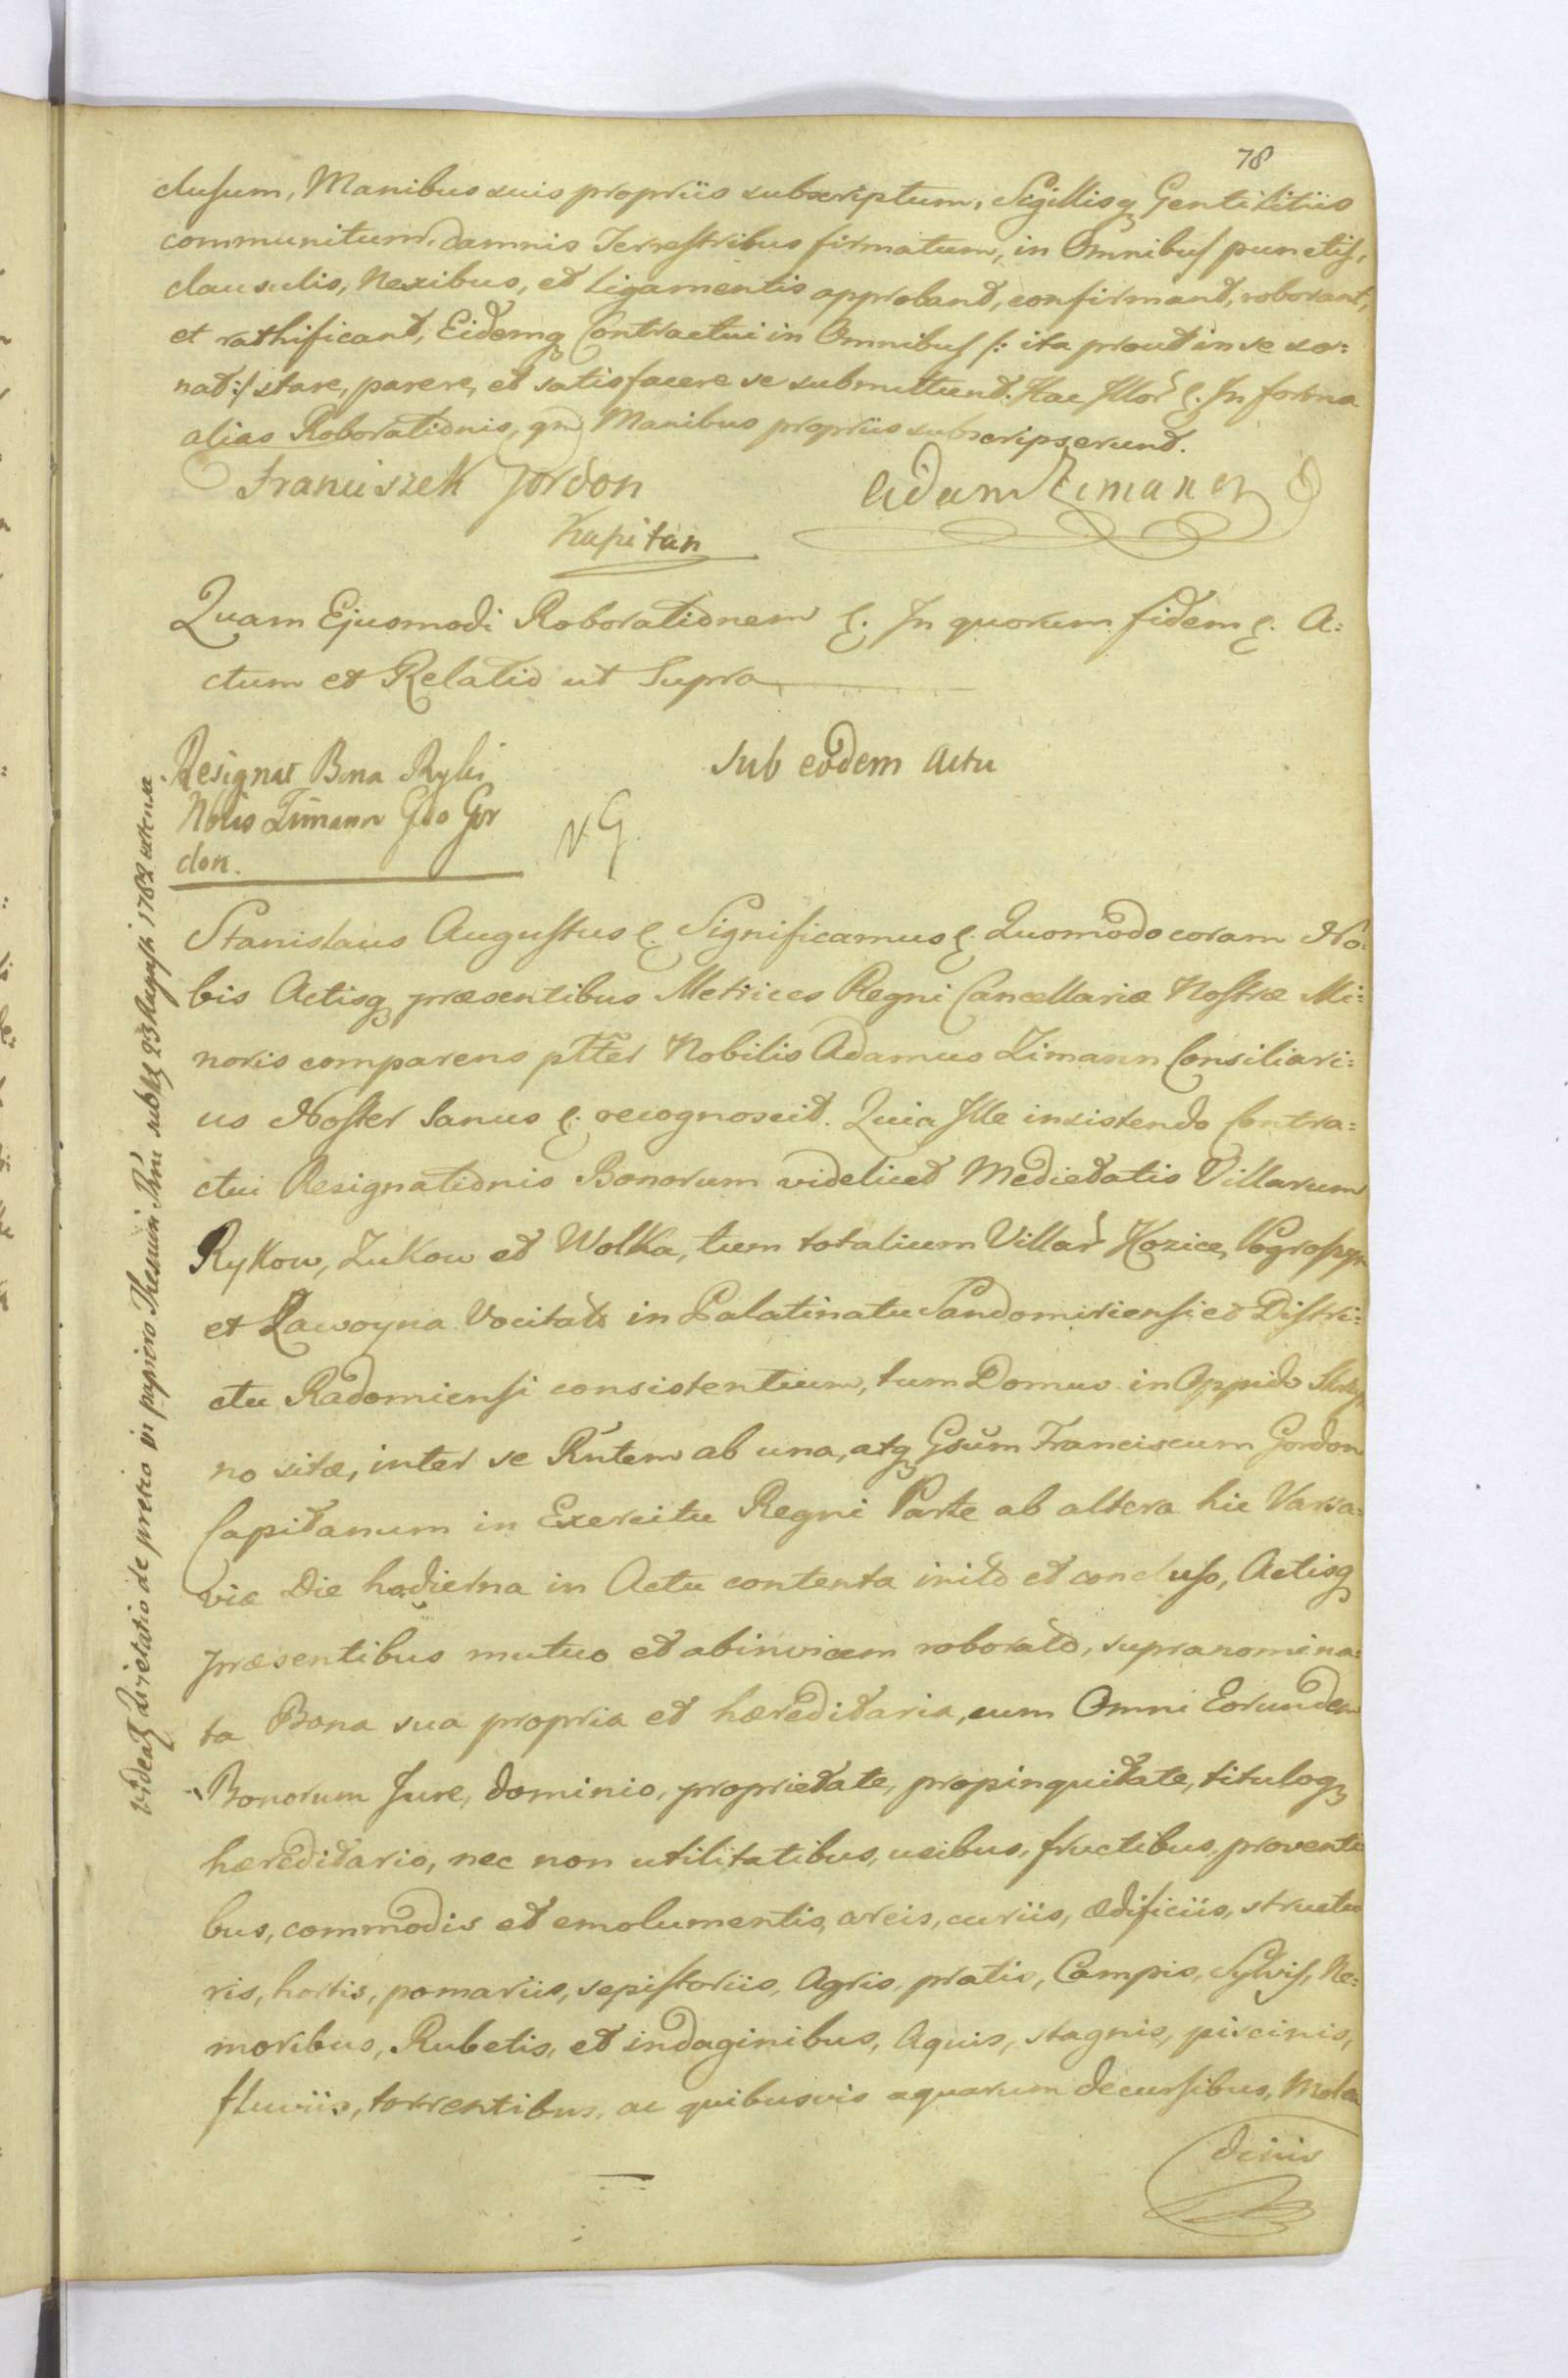 78
clusum, Manibus suis propriis subscriptum, Sigillisq Gentilitiis
communitum, damnis Terrestribus firmatum, in Omnibus punctis,
clausulis, Nexibus, et Ligamentis approband, confirmand, roborant,
et rathificant, Eidemq Contractui in Omnibus /: ita prout in se so:
nat :/ stare, parere, et satisfacere se submittunt. Hac Illor &. In forma
alias Roborationis, qn Manibus propriis subscripserunt.
Franciszek Gordon
Kapitan
Adam Zimann
Quam Ejusmodi Roborationem &. In quorum fidem &. A:
ctum et Relatio ut Supra
Resignat Bona
Nblis Zimann Gso Gor
don.
Sub eodem Actu
Stanislaus Augustus &. Significamus &. Quomodo coram No:
bis Actisq præsentibus Metrices Regni Cancellariæ Nostræ Mi:
noris comparens ptter Nobilis Adamus Zimann Consiliari:
us Noster Sanus &. recognoscit. Quia Ille insistendo Contra:
ctui Resignationis Bonorum videlicet Medietatis Villarum
Rykow, Zukow et Wolka, tum totalium Villar Kozice, Pogroszyn
et Zawoyna Vocitat in Palatinatu Sandomiriensi et Distri:
ctu Radomiensi consistentium, tum Domus in Oppido
no sitæ, inter se Rntem ab una, atq Gsum Franciscum Gordon
Capitanum in Exercitu Regni Parte ab altera hic Varsa:
viæ Die hodierna in Actu contenta inito et concluso, Actisq
præsentibus mutuo et abinvicem roborato, supranomina:
ta Bona sua propria et hæreditaria, cum Omni Eorundem
Bonorum Jure, dominio, proprietate, propinquitate, tituloq
hæreditario, nec non utilitatibus, usibus, fructibus, proventi
bus, commodis et emolumentis, areis, curiis, ædificiis, structu
ris, hortis, pomariis, sepistoriis, Agris, pratis, Campis, Sylvis, Ne:
moribus, Rubetis, et indaginibus, Aquis, stagnis, piscinis,
fluviis, torrentibus, ac quibusvis aquarum decursibus, Molen
dinis
videatq Quietatio de pretio in papiero Thesauri Rni subtq 23 Augusti 1782